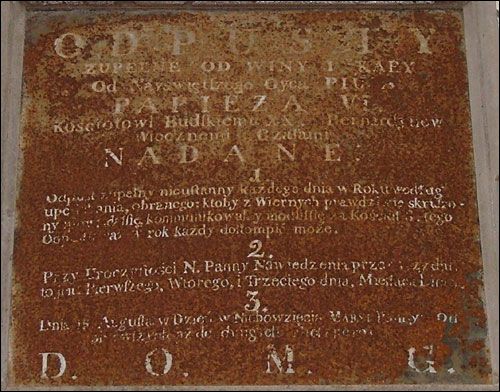 ODPUSTY
ZUPEŁNE OD WINY I KARY
Od Nayswiętszego Oyca PIUSA
PAPIEZA VI.
Kościołowi Budskiemu XX. Bernardynow
Wiecznemi Czasami
NADANE.
1
Odpust zupełny nieustanny każdego dnia w Roku według
obranego: ktoby z Wiernych prawdziwie skruszo-
ny kommunikował, y modlił się za Kościoł S. tego
rok każdy dostompić może.
2.
Przy Uroczystości N. Panny Nawiedzenia przez dni
to jest Pierwszego, Wtorego, i Trzeciego dnia, Miesiąca Lipca.
3.
Dnia 15 Augusta w Dzień W Niebowzięcia MARYI Panny Od
az do drugich
D. O. M. G.